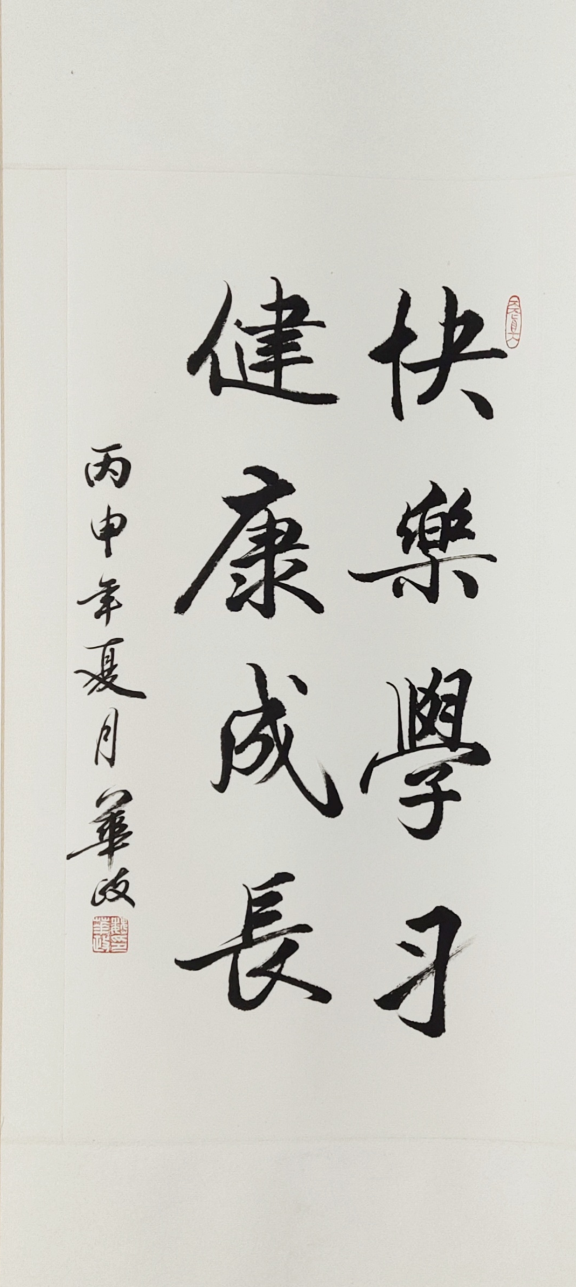 快樂學习
健康成長
丙申年夏月華政